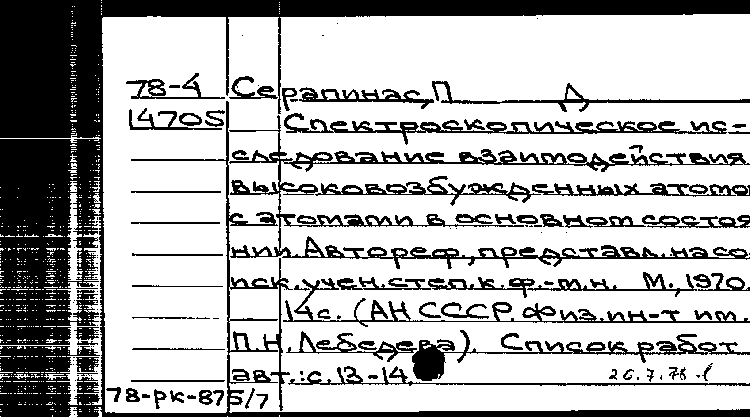 78-4 Серапинас, П Д
14705 Спектроскопическое ис-
следование взаимодействия
высоковозбужденных атомо
с атомами в основном состоя
нии. Автореф., представл. на со
иск. учен. степ. к. ф.-м. н. М., 1970.
14 с. (АН СССР. Физ. ин-т им.
П.Н. Лебедева). Список работ
авт.: с. 13-14.
26.7.78
78-рк-875/7